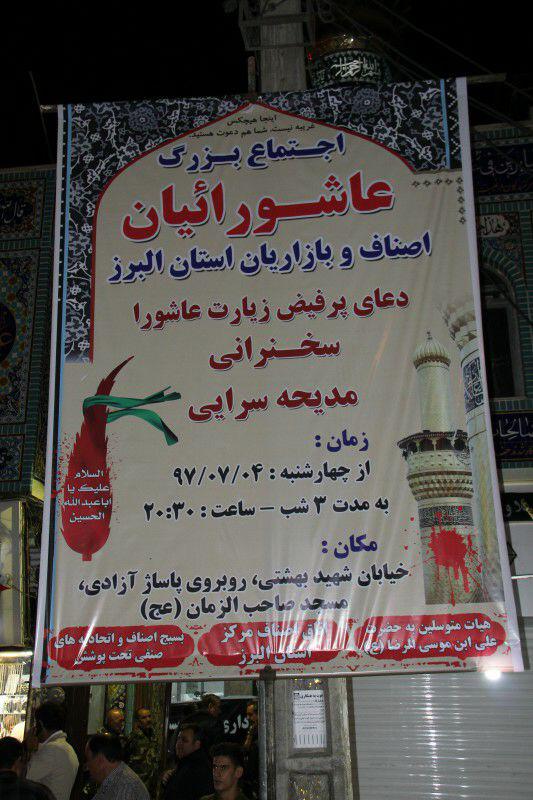 اینجا هیچکس
غریبه نیست، شما هم دعوت هستید.
اجتماع بزرگ
عاشورائیان
اصناف و بازاریان استان البرز
دعای پرفیض زیارت عاشورا
سخنرانی
مدیحه سرایی
السلام
علیک یا
اباعبدالله
الحسین
زمان :
از چهارشنبه : ۹۷/۰۷/۰۴
به مدت ۳ شب – ساعت : ۲۰:۳۰
مکان :
خیابان شهید بهشتی، روبروی پاساژ آزادی،
مسجد صاحب الزمان (عج)
هیات متوسلین به حضرت
علی ابن موسی الرضا (ع)
اتاق اصناف مرکز
استان البرز
بسیج اصناف و اتحادیه های
صنفی تحت پوشش